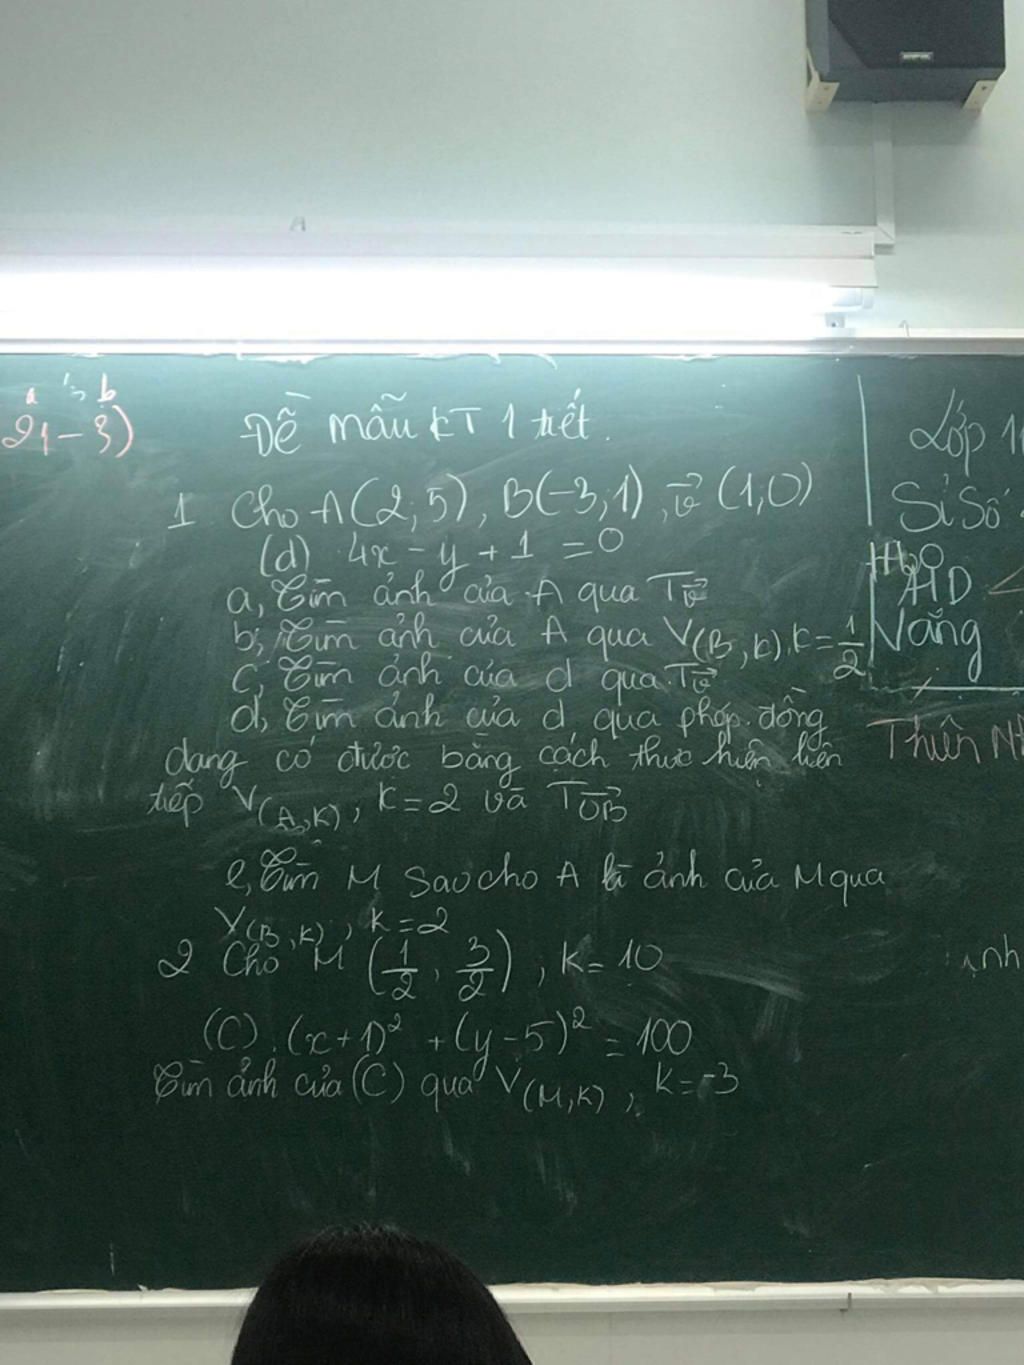 a b
2, -3)
Đề mẫu KT 1 tiết.
1 Cho A(2,5), B(-3,1), v⃗ (1,0)
(d) 4x - y + 1 = 0
a, Tìm ảnh của A qua Tv⃗
b, Tìm ảnh của A qua V(B,k), k = 1/2
c, Tìm ảnh của d qua Tv⃗
d, Tìm ảnh của d qua phép đồng
dạng có được bằng cách thực hiện liên
tiếp V(A,K), K=2 và TOB⃗
e, Tìm M sao cho A là ảnh của M qua
V(B,K), K=2
2 Cho M (1/2, 3/2), K=10
(C) (x+1)² + (y-5)² = 100
Tìm ảnh của (C) qua V(M,K), K=-3
Lớp 1
Sỉ Số
HD
Vắng
Thiên